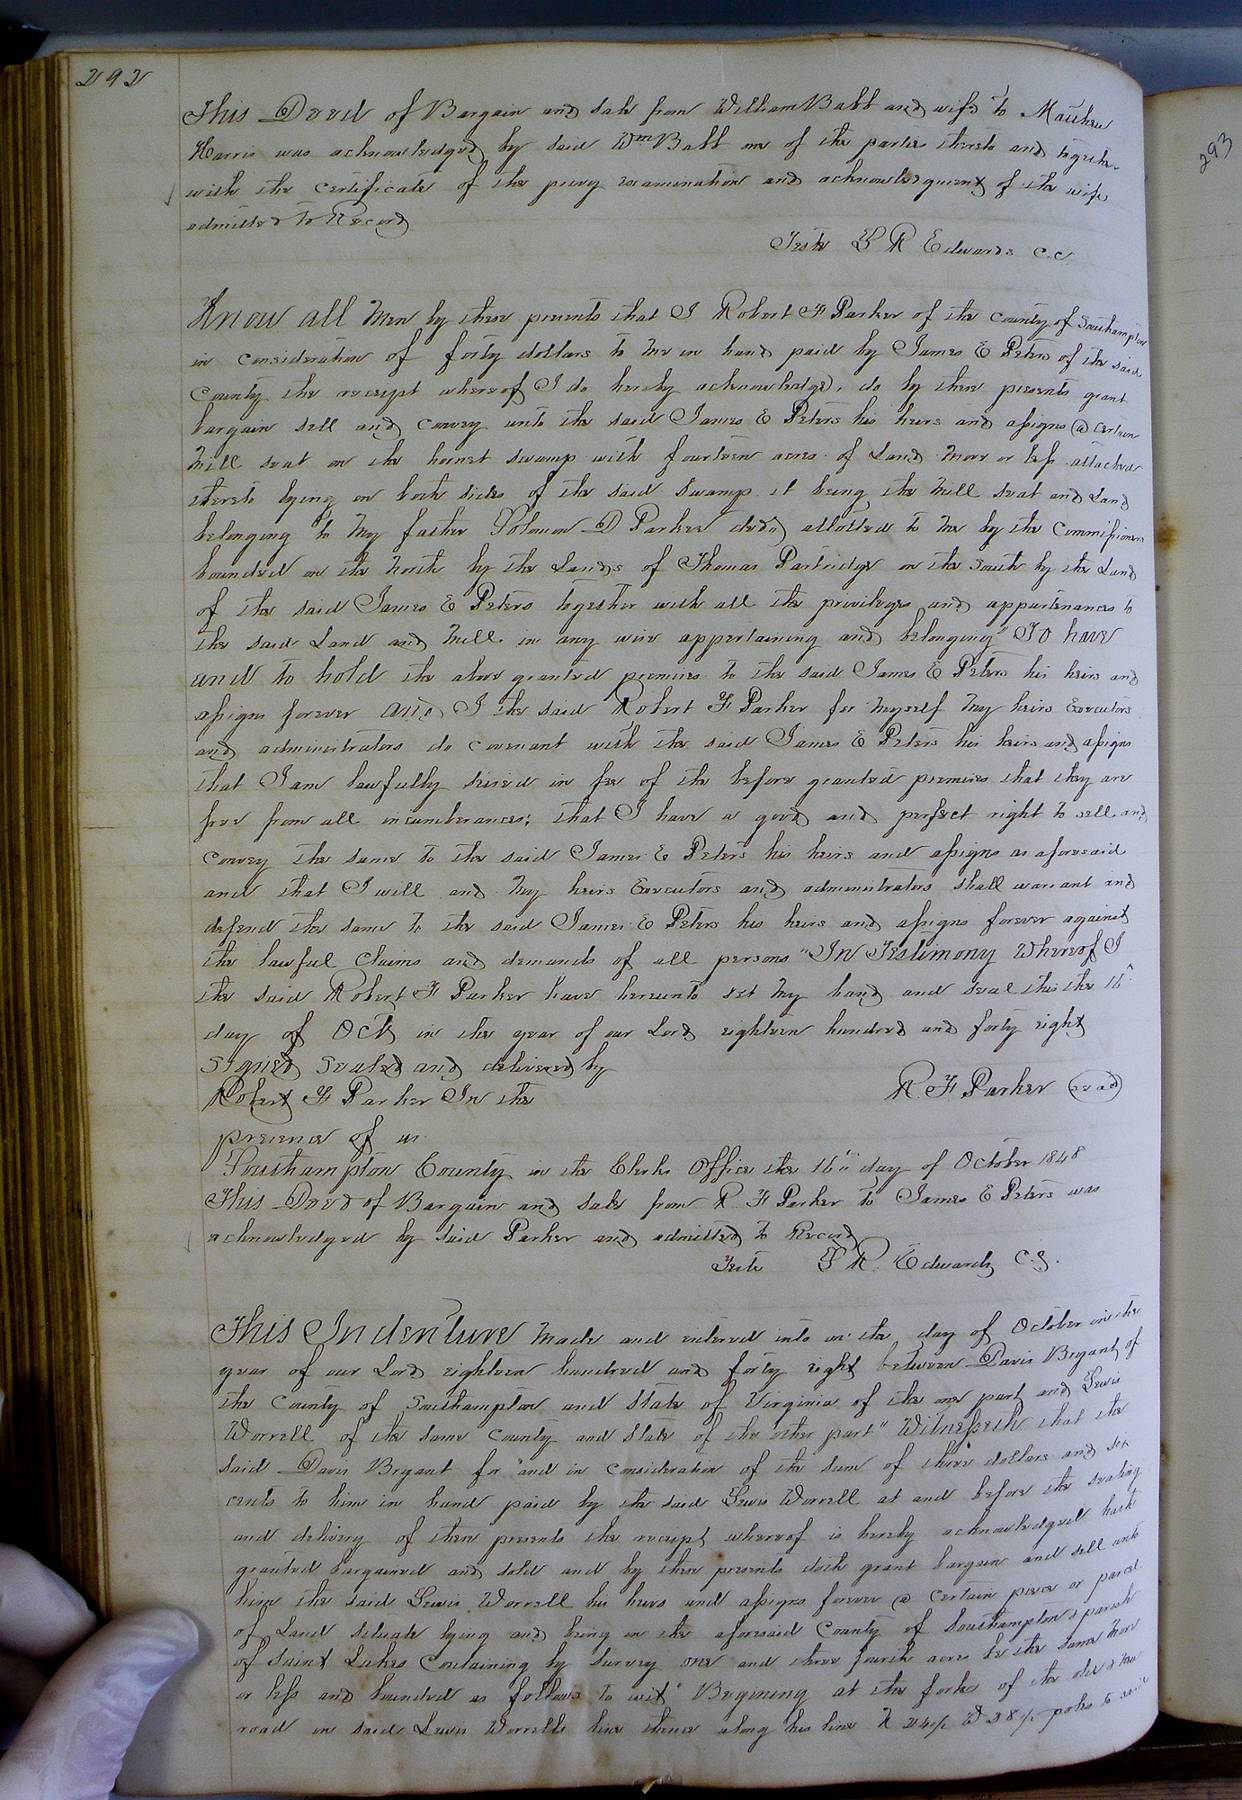 292
This Deed of Bargain and sale from William Babb and wife to Mathew
Harris was acknowledged by said Wm Babb one of the parties thereto and together
with the certificate of the privy examination and acknowledgment of the wife
admitted to Record
Teste L R Edwards c.c.
Know all Men by these presents that I Robert F Parker of the county of Southampton
in consideration of forty dollars to me in hand paid by James E Peters of the said
County the receipt whereof I do hereby acknowledge, do by these presents grant
bargain sell and convey unto the said James E Peters his heirs and assigns a certain
Mill seat on the hornet swamp with fourteen acres of Land more or less attached
thereto lying on both sides of the said swamp it being the Mill seat and Land
belonging to My father Solomon D Parker decd allotted to me by the Commissioners
bounded on the North by the Lands of Thomas Partridge on the south by the Land
of the said James E Peters together with all the privileges and appurtenances to
the said Land and Mill in any wise appertaining and belonging" To have
and to hold the above granted premises to the said James E Peters his heirs and
assigns forever And I the said Robert F Parker for Myself My heirs Executors
and administrators do covenant with the said James E Peters his heirs and assigns
that I am lawfully seized in fee of the before granted premises that they are
free from all incumberances; that I have a good and perfect right to sell and
convey the same to the said James E Peters his heirs and assigns as aforesaid
and that I will and My heirs Executors and administrators shall warrant and
defend the same to the said James E Peters his heirs and assigns forever against
the lawful Claims and demands of all persons "In Testimony Whereof I
the said Robert F Parker have hereunto set My hand and seal this the 16th
day of Oct in the year of our Lord eighteen hundred and forty eight
Signed Sealed and delivered by
Robert F Parker In the R. F Parker (seal)
presence of us
Southampton County in the Clerks Office the 16th day of October 1848
This Deed of Bargain and sale from R. F Parker to James E Peters was
acknowledged by said Parker and admitted to Record
Teste L R. Edwards C.S.
This Indenture Made and entered into on the day of October in the
year of our Lord eighteen hundred and forty eight between Davis Bryant of
the County of Southampton and State of Virginia of the one part and Lewis
Worrell of the same County and State of the other part" Witnesseth that the
said Davis Bryant for and in consideration of the sum of three dollars and six
cents to him in hand paid by the said Lewis Worrell at and before the sealing
and delivery of these presents the receipt whereof is hereby acknowledged hath
granted bargained and sold and by these presents doth grant bargain and sell unto
him the said Lewis Worrell his heirs and assigns forever a certain piece or parcel
of Land situate lying and being in the aforesaid County of Southampton & parish
of Saint Lukes Containing by survey one and three fourth acres be the same more
or less and bounded as follows to wit" Begining at the forks of the old & new
road in said Lewis Worrells line thence along his line N 24½ W 28½ poles to said
293